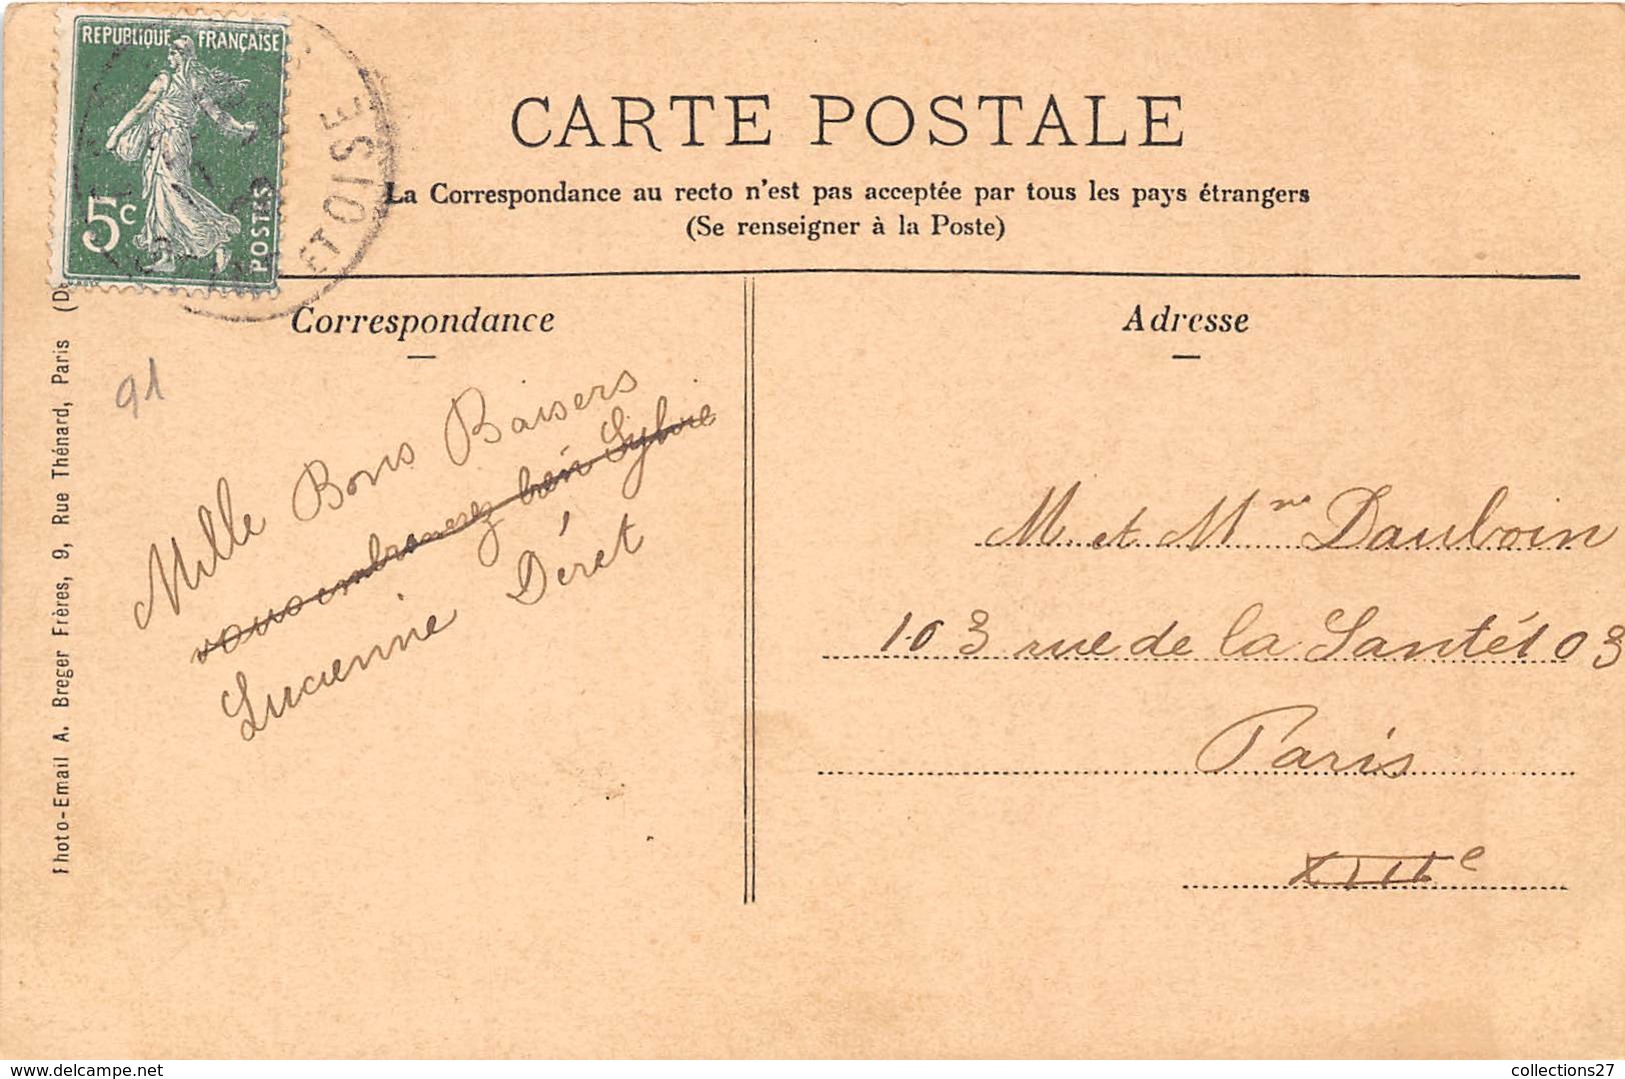 REPUBLIQUE FRANÇAISE
5c
POSTES
ET OISE
CARTE POSTALE
La Correspondance au recto n'est pas acceptée par tous les pays étrangers
(Se renseigner à la Poste)
Correspondance
91
Mille Bons Baisers
vous embrasserez bien Sylvie
Lucienne Déret
Adresse
M. et Mme Dauboin
103 rue de la Santé 103
Paris
XIIIe
Photo-Email A. Breger Frères, 9, Rue Thénard, Paris
delcampe.net
collections27